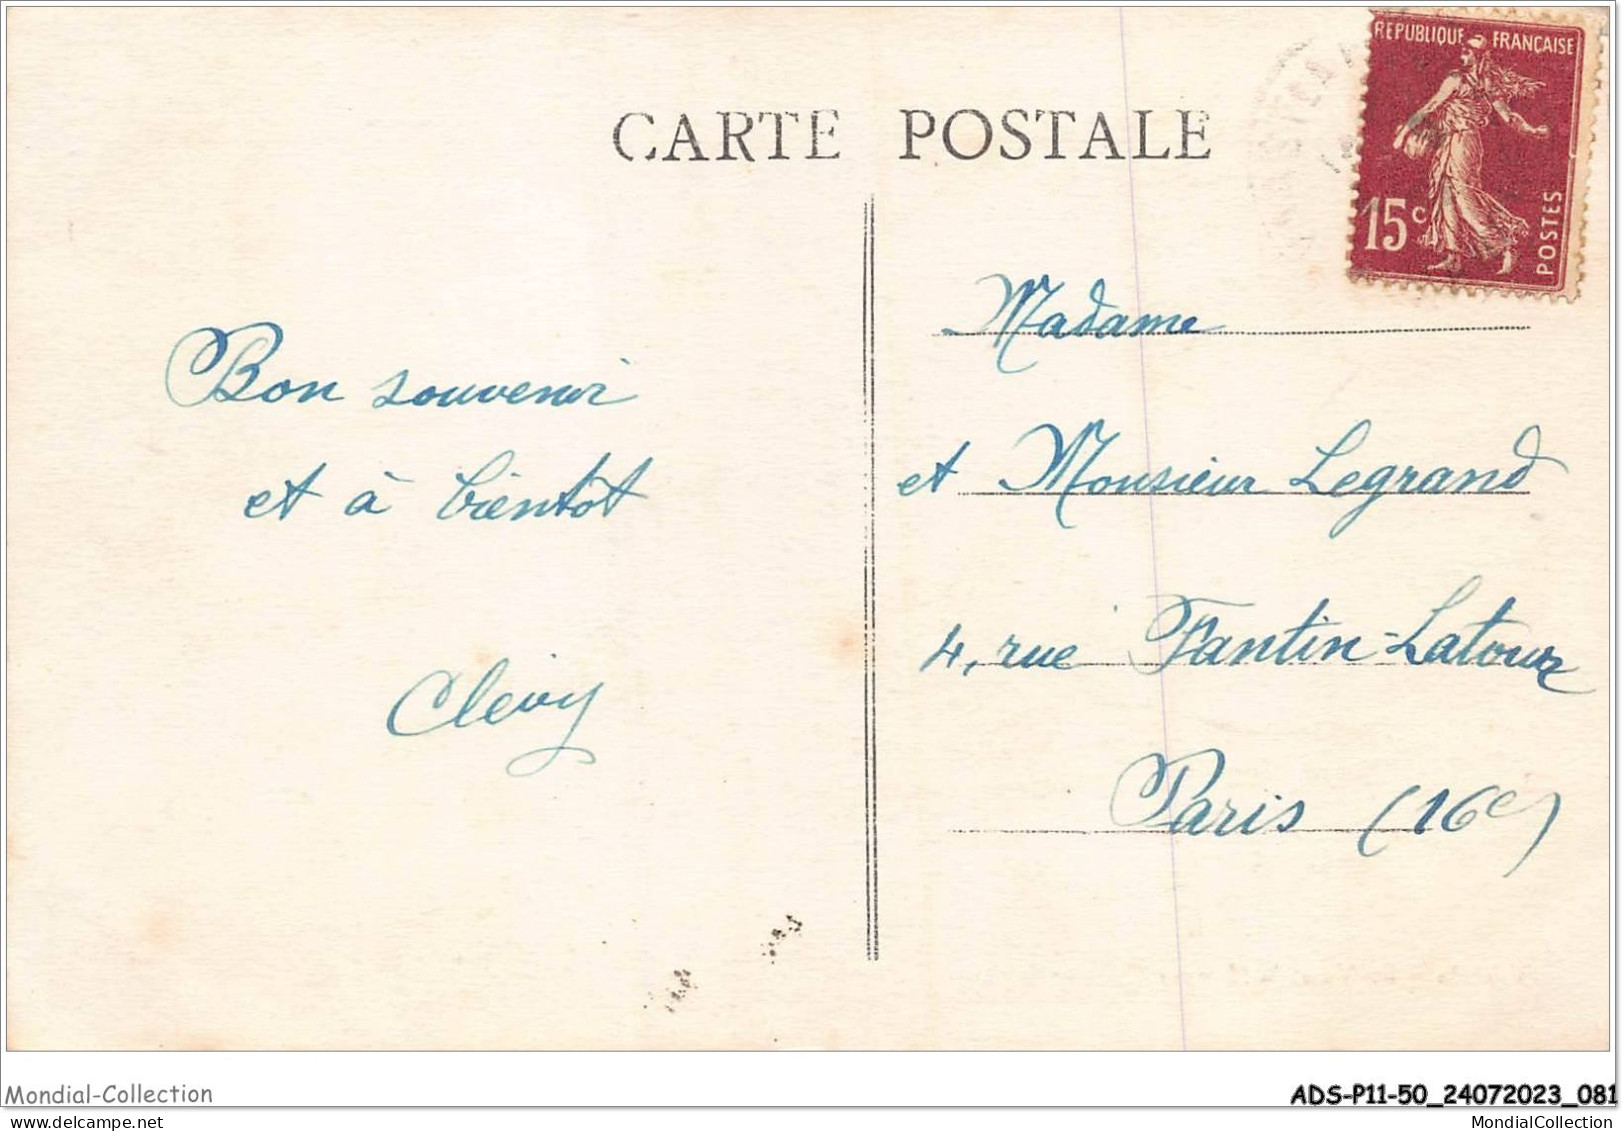 CARTE POSTALE
REPUBLIQUE FRANÇAISE
15c
POSTES
Bon souvenir
et à bientôt
Madame
et Monsieur Legrand
4, rue Fantin-Latour
Paris (16e)
Mondial-Collection
ADS-P11-50_24072023_081
MondialCollection